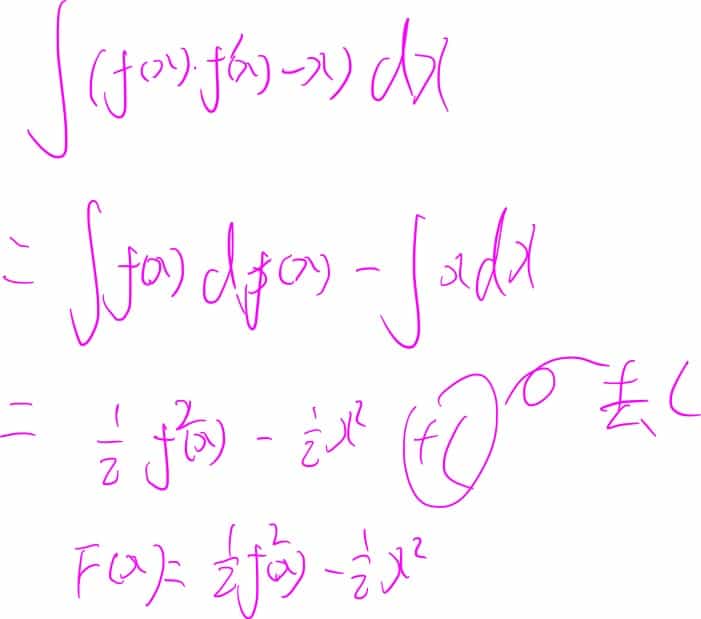 ∫(f(x)·f'(x)-x) dx
= ∫f(x) df(x) - ∫x dx
= 1/2 f²(x) - 1/2 x² (+C) 去C
F(x)= 1/2 f²(x) - 1/2 x²